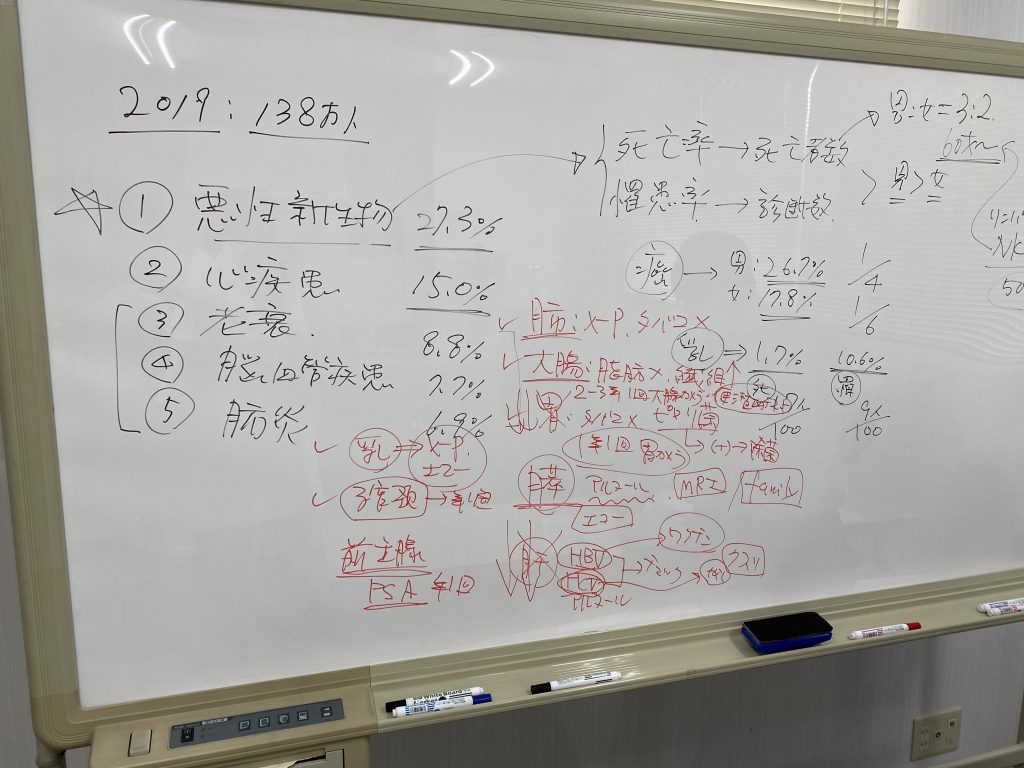 2019 : 138万人
① 悪性新生物 27.3%
② 心疾患 15.0%
③ 老衰 8.8%
④ 脳血管疾患 7.7%
⑤ 肺炎
死亡率 → 死亡者数
罹患率 → 診断数
男:女=3:2
60才〜
男>女
癌 → 男:26.7% 1/4
女:17.8% 1/6
乳 ⇒ 1.7% 10.6%
死 罹
/100 9人/100
NK
50
肺:X-P. タバコ×
大腸:脂肪× 繊維↑
2-3年1回大腸カメラ
胃:タバコ× ピロリ菌
年1回胃カメラ → (+) → 除菌
乳 ⇒ X-P. エコー
子宮頚 → 年1回
膵 アルコール. MRI family
エコー
前立腺
PSA 年1回
肝 HBV ワクチン
HCV クスリ
アルコール